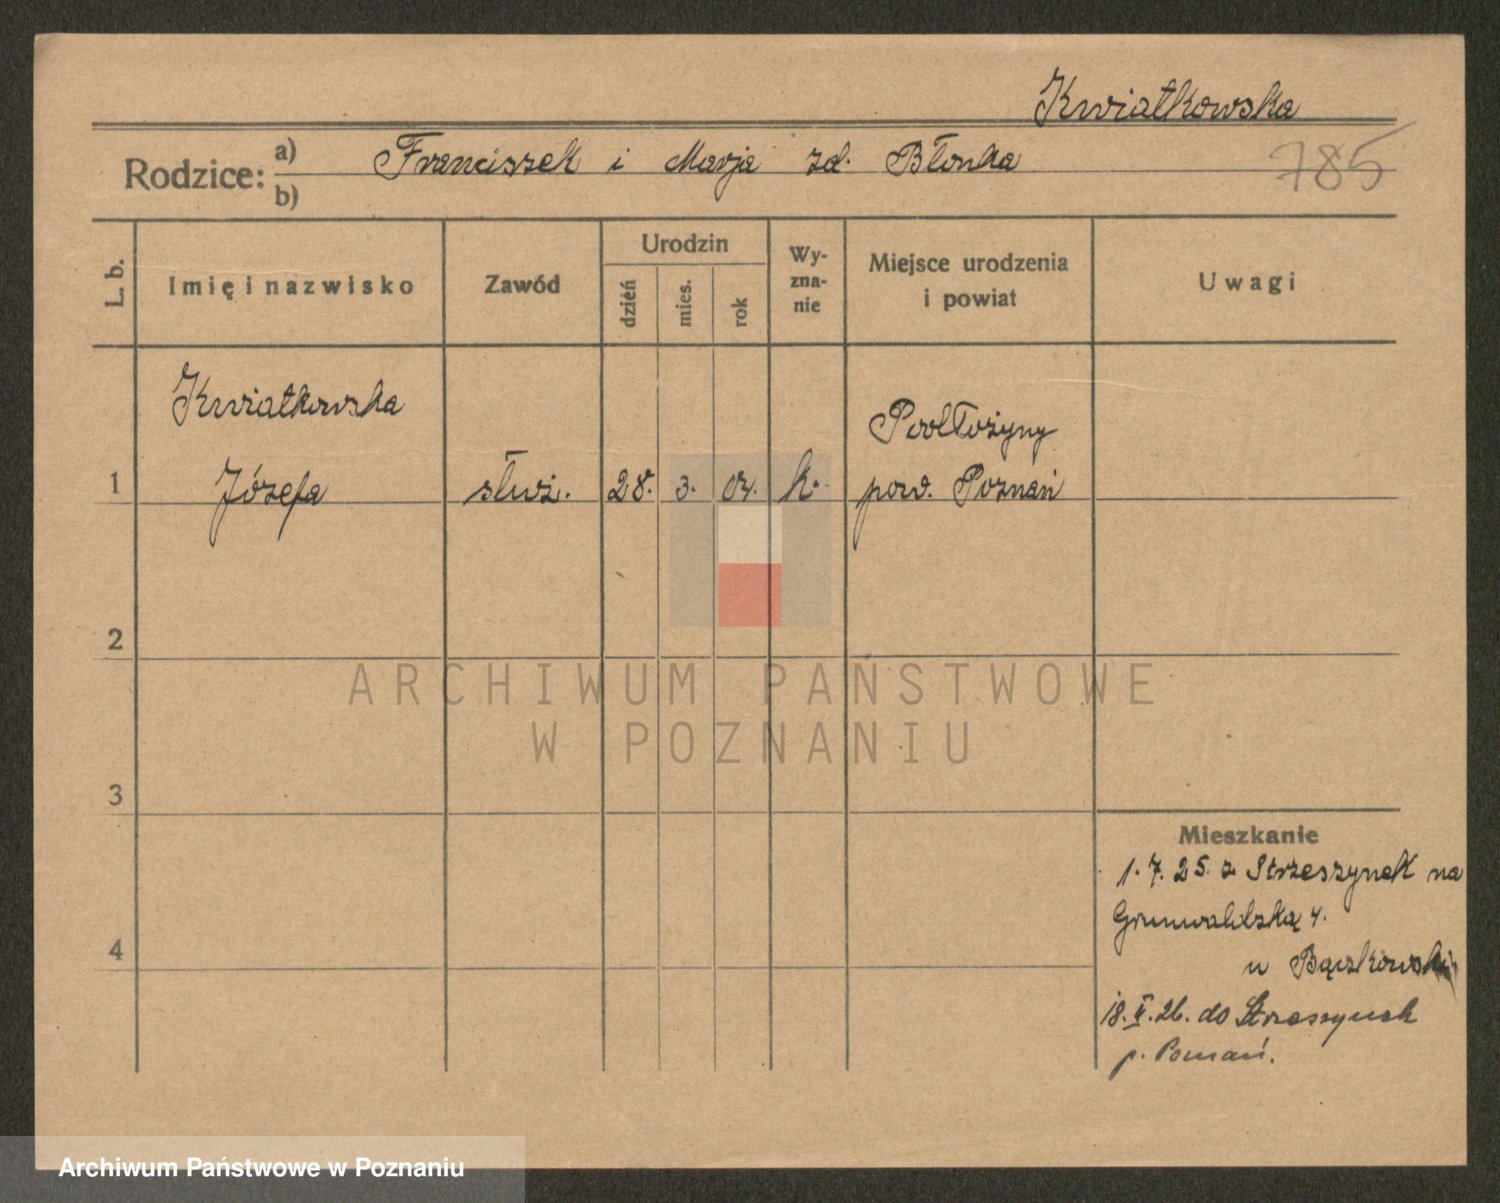 Kwiatkowska
Rodzice: a) Franciszek i Marja zd. Błonka
b)
785
L. b.
Imię i nazwisko
Zawód
Urodzin
dzień
mies.
rok
Wy-
zna-
nie
Miejsce urodzenia
i powiat
Uwagi
Kwiatkowska
1 Józefa służ. 28. 3. k.
Podłożyny
pow. Poznań
2
3
4
ARCHIWUM PAŃSTWOWE
W POZNANIU
Mieszkanie
1. 7. 25. z Strzeszynek na
Grunwaldzką 4.
u Bączkowski
18. V. 26. do Strzeszynek
p. Poznań.
Archiwum Państwowe w Poznaniu